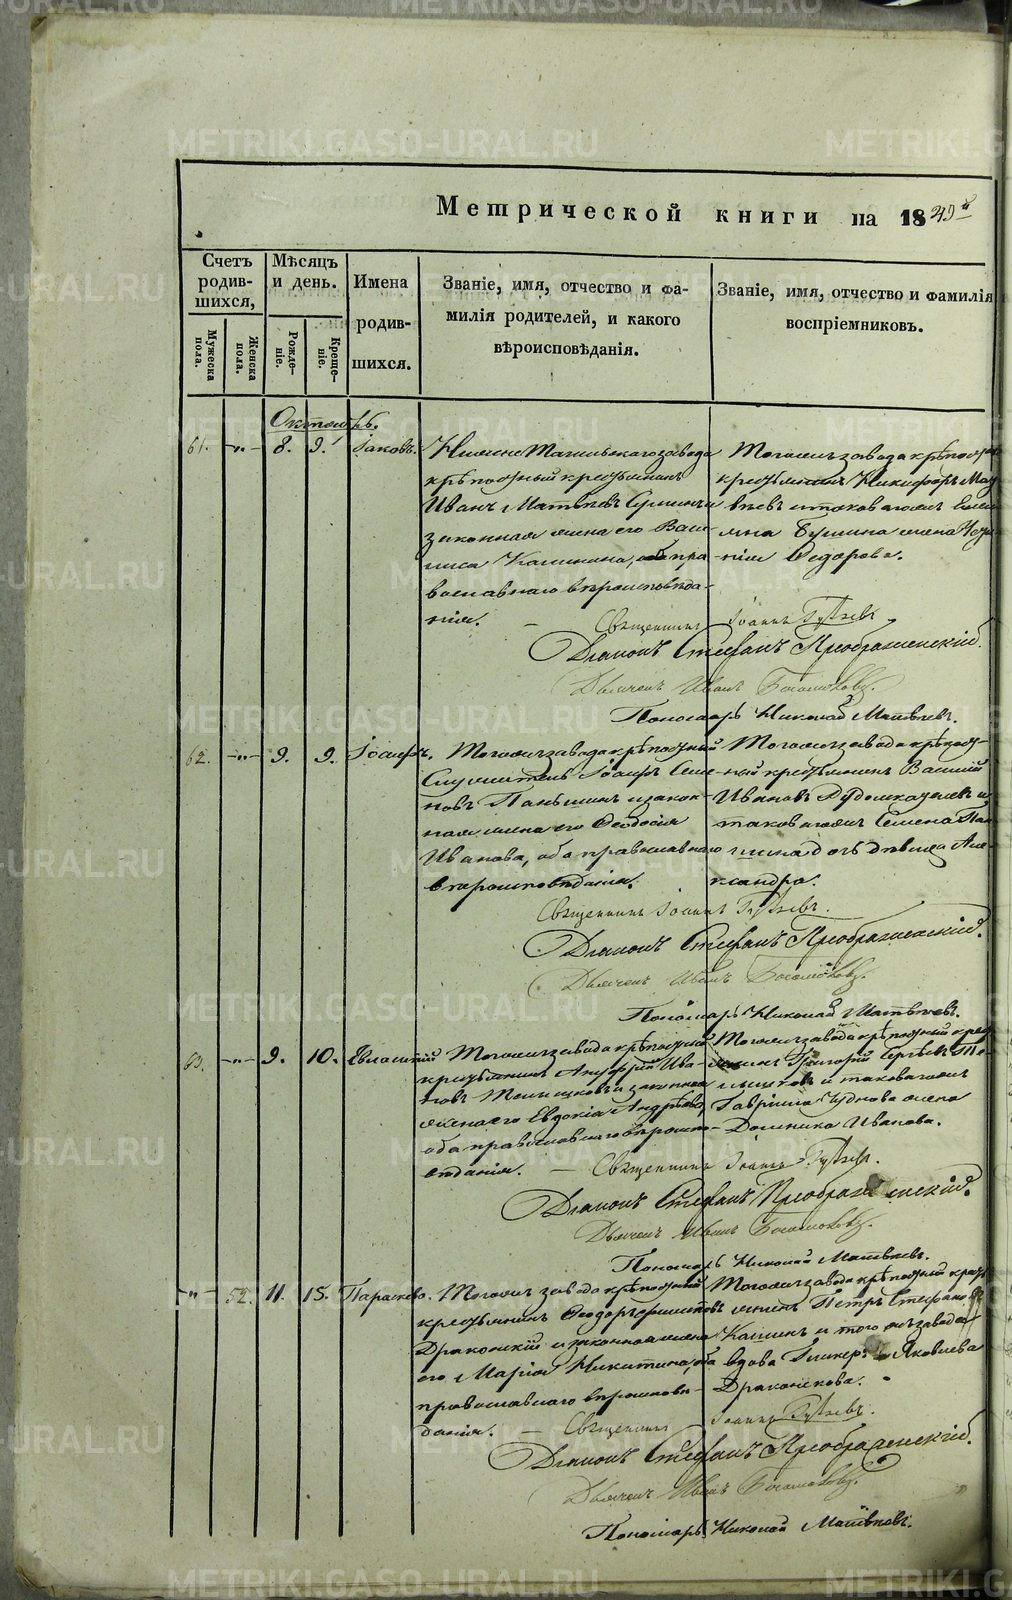 METRIKI.GASO-URAL.RU
Метрической книги на 1849 й
Счетъ родив- шихся,
Мужеска пола.
Женска пола.
Мѣсяцъ и день.
Рожде- ніе.
Креще- ніе.
Имена родив- шихся.
Званіе, имя, отчество и фа- милія родителей, и какого вѣроисповѣданія.
Званіе, имя, отчество и фамилія воспріемниковъ.
Октябрь.
61. -„- 8. 9. Іаковъ.
Нижне Тагильскаго завода
крѣпостный крестьянинъ
Иванъ Матвѣевъ
законная жена его Васи-
лиса Калинина, оба пра-
вославнаго вѣроисповѣда-
нія.
Тогожъ завода крѣпостн
крестьянинъ Никифоръ Мат
вѣевъ и таковагожъ
жена
нія Ѳедорова.
Священникъ Іоаннъ
Діаконъ Стефанъ Преображенскій.
Дьячекъ Иванъ Богомоловъ.
Пономарь Николай Матвѣевъ.
62. -„- 9. 9. Іоасафъ.
Тогожъ завода крѣпостный
Служитель Іоасафъ Семе-
новъ Паньшинъ и закон-
ная жена его Ѳеодосія
Иванова, оба православнаго
вѣроисповѣданія.
Тогожъ завода крѣпост-
ный крестьянинъ Василій
Ивановъ и
таковагожъ Семена Пан
шина дочь дѣвица Але
ксандра.
Священникъ Іоаннъ
Діаконъ Стефанъ Преображенскій.
Дьячекъ Иванъ Богомоловъ.
Пономарь Николай Матвѣевъ.
63. -„- 9. 10. Евлампій
Тогожъ завода крѣпостный
крестьянинъ Ануфрій Ива-
новъ и законная
жена его Евдокія Андрѣева,
оба православнаго вѣроиспо-
вѣданія.
Тогожъ завода крѣпостный крес
янинъ Григорій Сергѣевъ
и таковагожъ
Гавріила Чуднова жена
Домника Иванова.
Священникъ Іоаннъ
Діаконъ Стефанъ Преображенскій.
Дьячекъ Иванъ Богомоловъ.
Пономарь Николай Матвѣевъ.
-„- 52. 11. 15. Параскева.
Тогожъ завода крѣпостный
крестьянинъ Ѳеодоръ
Драконскій и законная жена
его Марія Никитина, оба
православнаго вѣроисповѣ-
данія.
Тогожъ завода крѣпостный крест
янинъ Петръ Стефано
и того жъ завода
вдова Гликер Яковлева
Драконскова.
Священникъ Іоаннъ
Діаконъ Стефанъ Преображенскій.
Дьячекъ Иванъ Богомоловъ.
Пономарь Николай Матвѣевъ.